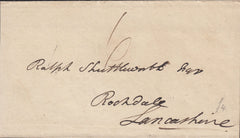 Ralph Shuttleworth Esqr
Rochdale
Lancashire